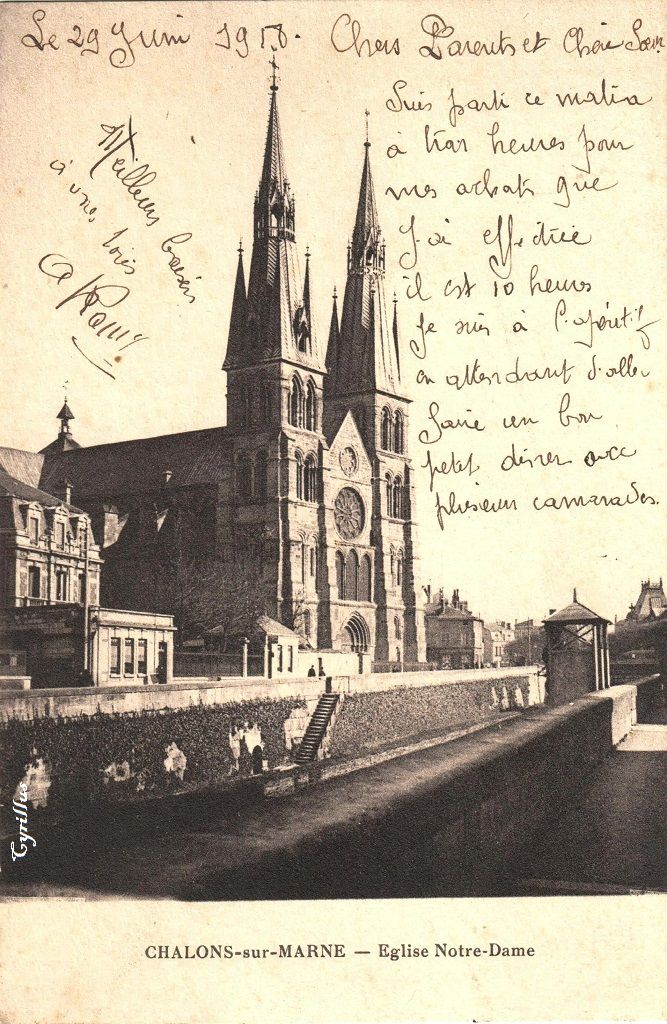 Le 29 Juin 1918. Chers Parents et Chère Sœur
Suis parti ce matin
à trois heures pour
mes achats que
J'ai effectué
il est 10 heures
Je suis à l'apéritif
en attendant d'aller
faire un bon
petit dîner avec
plusieurs camarades.
Meilleurs baisers
à vous tous
CHALONS-sur-MARNE — Eglise Notre-Dame
Cyrillus